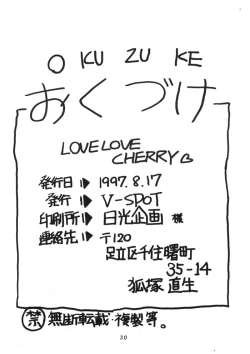 O KU ZU KE
おくづけ
LOVE LOVE
CHERRY B
発行日 ▶ 1997.8.17
発行 ▶ V-SPOT
印刷所 ▶ 日光企画 様
連絡先 ▶ 〒120
足立区千住曙町
35-14
狐塚直生
禁 無断転載・複製等。
30